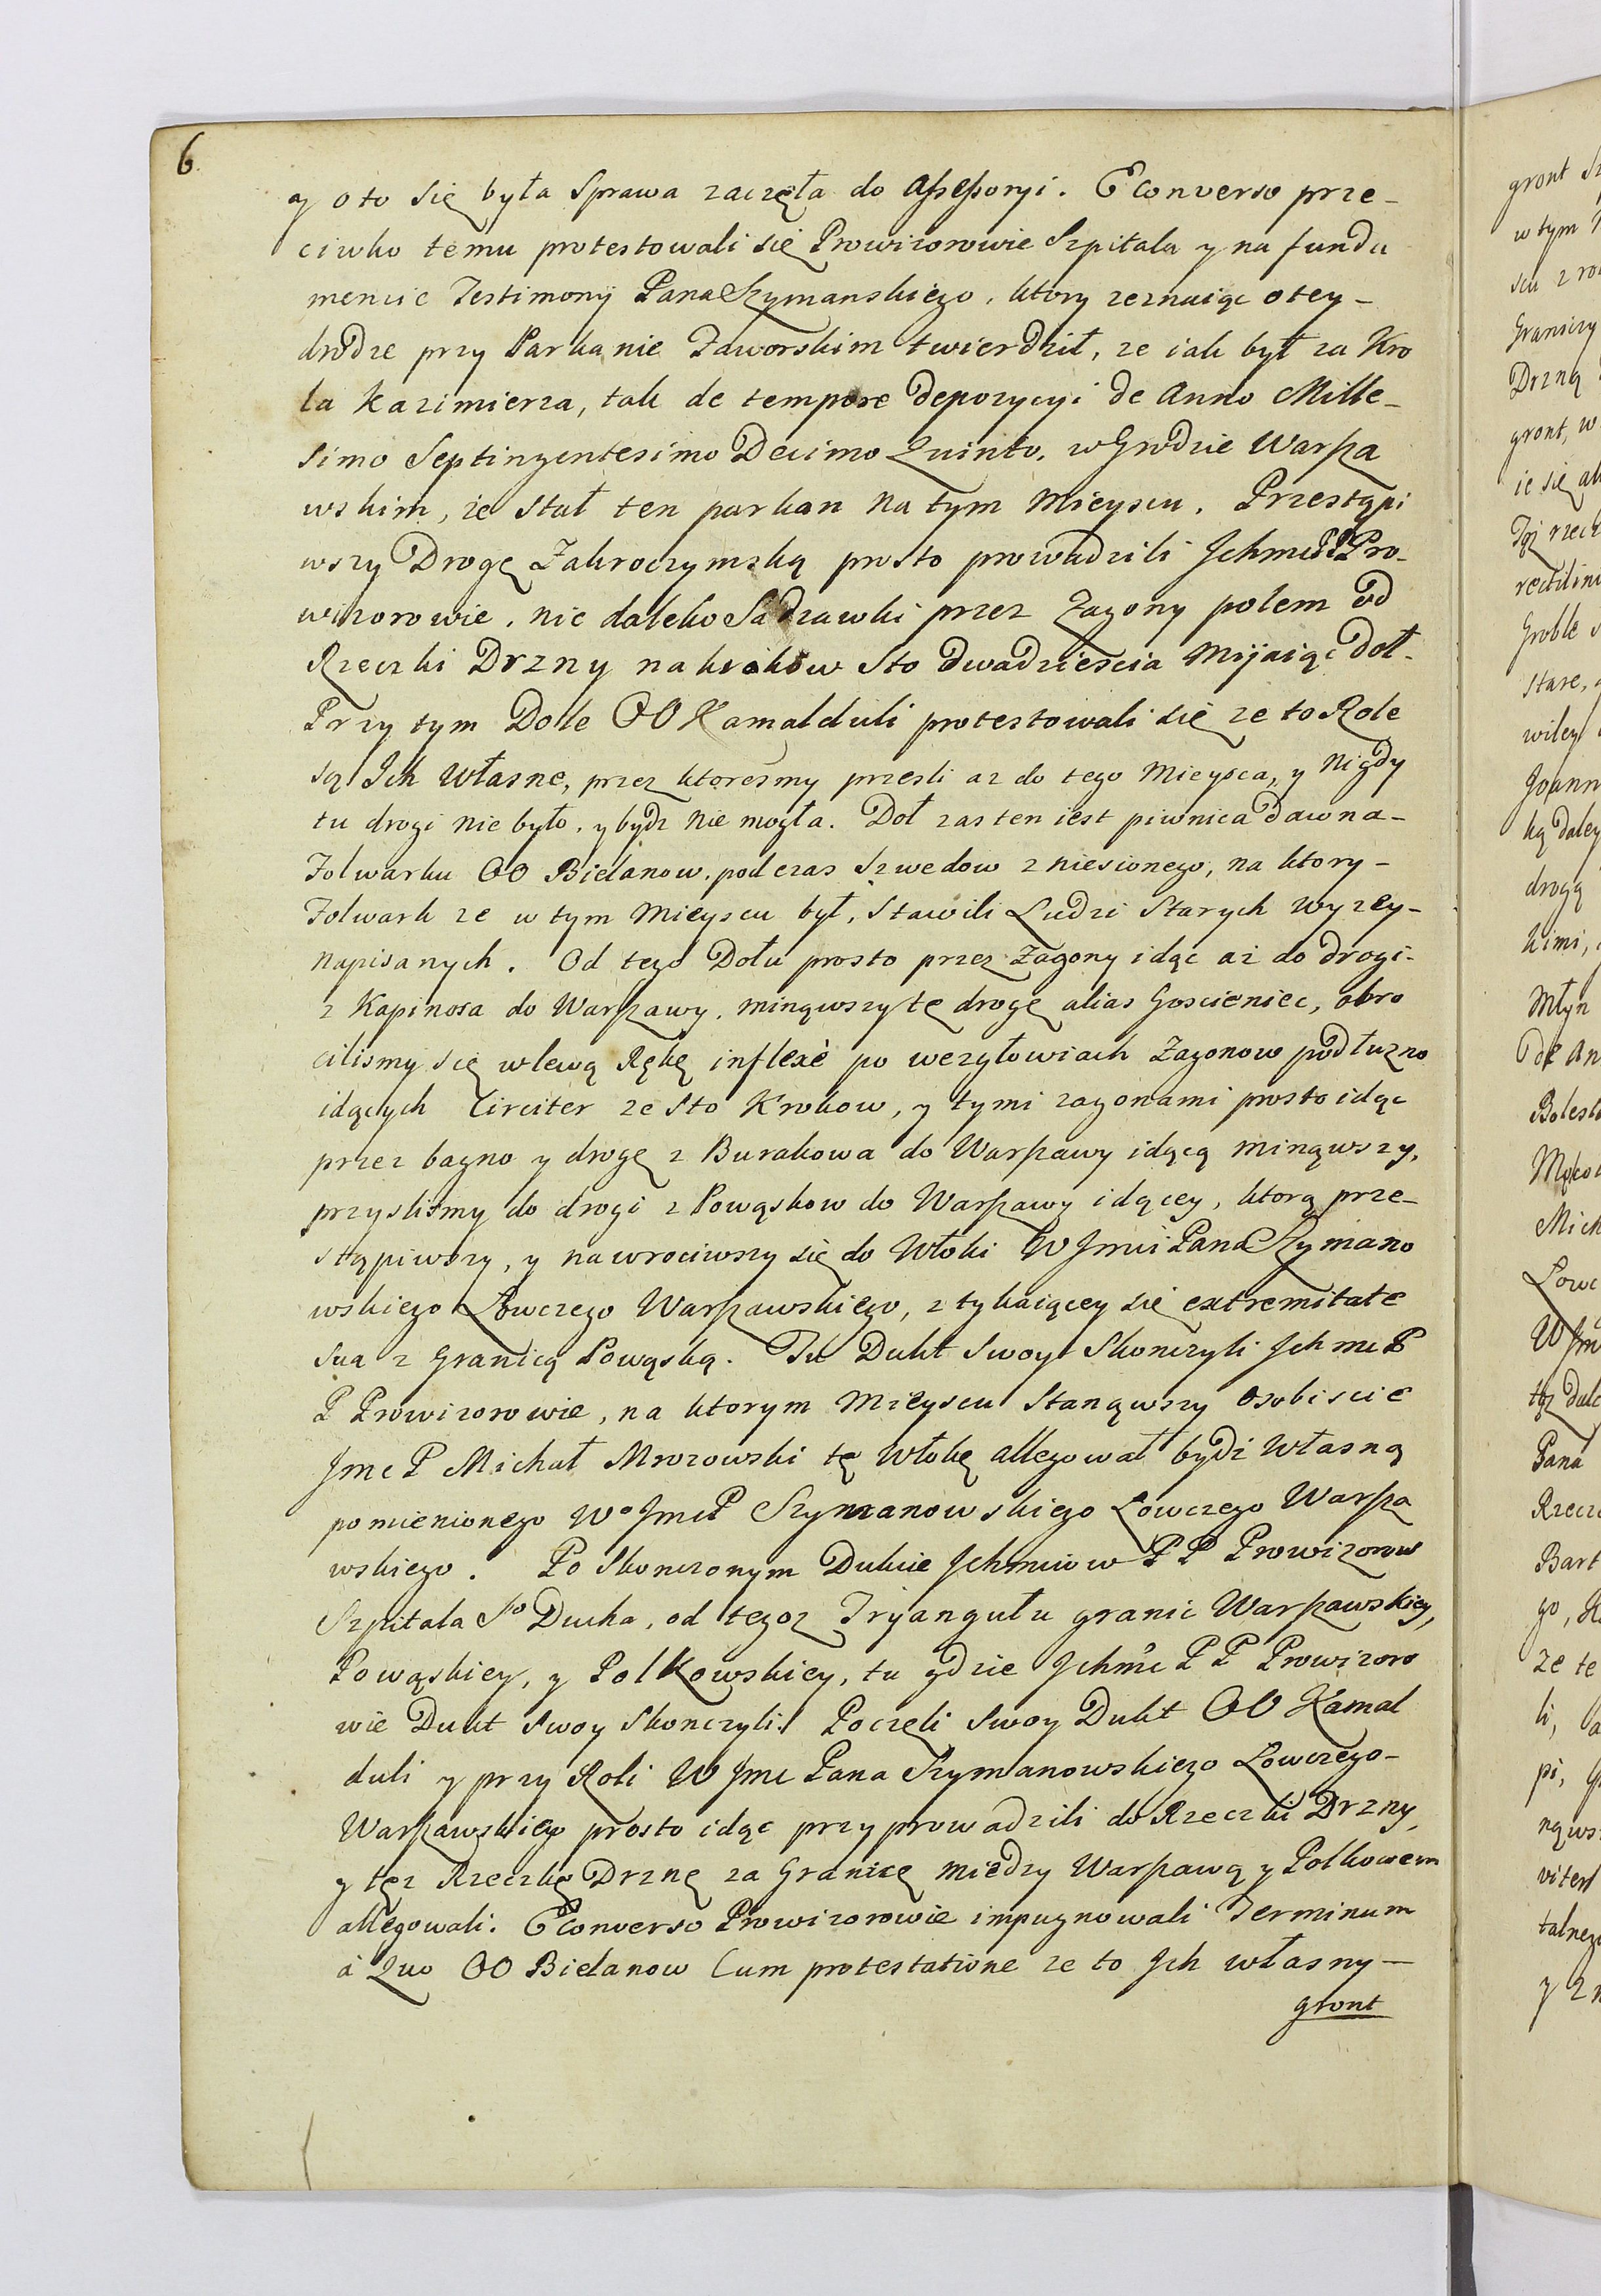 6.
y oto się była Sprawa zaczęła do Assessoryi. E converso prze-
ciwko temu protestowali się Prowizorowie Szpitala y na funda
mencie Testimonij Pana Szymanskiego, ktory zeznaiąc otey-
drodze przy Parkanie Jaworskim twierdził, ze iak był za Kro
la Kazimierza, tak de tempore depozycyi de Anno Mille-
simo Septingentesimo Decimo Quinto, w Grodzie Warsza
wskim, ze stał ten parkan na tym Mieyscu. Przestąpi
wszy Drogę Zakroczymską prosto prowadzili Jchmć PPro-
wizorowie, nie daleko Sadzawki przez Zagony polem od
Rzeczki Drzny na krokow Sto dwadziescia Mijaiąc Doł.
Przy tym Dole OO Kamalduli protestowali się ze to Role
są Jch Własne, przez ktoresmy przesli az do tego Mieysca, y nigdy
tu drogi nie było, y bydz nie mogła. Doł zas ten iest piwnica dawna-
Folwarku OO Bielanow, podczas Szwedow zniesionego, na ktory-
Folwark ze w tym Mieyscu był, Stawili Ludzi Starych wyzey-
napisanych. Od tego Dołu prosto przez Zagony idąc aż do drogi-
z Kapinosa do Warszawy, minąwszy tę drogę alias Goscieniec, obro
cilismy się w lewą Rękę inflexè po wezgłowiach Zagonow podłuzno
idących Circiter ze Sto Krokow, y tymi zagonami prosto idąc
przez bagno y drogę z Burakowa do Warszawy idącą minąwszy,
przyslismy do drogi z Powąskow do Warszawy idącey, ktorą prze-
stąpiwszy, y nawrociwszy się do Włoki W Jmci Pana Szymano
wskiego Łowczego Warszawskiego, z tykaiącey się extremitate
sua z Granicą Powąską. Tu Dukt Swoy Skonczyli Jchmć P
P Prowizorowie, na ktorym Mieyscu Stanąwszy Osobiscie
Jmć P Michał Mrozowski tę Włokę allegował bydź Własną
pomienionego Wo Jmć P Szymanowskiego Łowczego Warsza
wskiego. Po Skonczonym Dukcie Jchmciow PP Prowizorow
Szpitala So Ducha, od tegoz Tryangułu granic Warszawskiey,
Powąskiey, y Polkowskiey, tu gdzie Jchmć PP Prowizoro
wie Dukt Swoy Skonczyli. Poczeli Swoy Dukt OO Kamal
duli y przy Roli W Jmć Pana Szymanowskiego Łowczego-
Warszawskiego prosto idąc przyprowadzili do Rzeczki Drzny,
y tęz Rzeczkę Drznę za Granicę między Warszawą y Polkowem
allegowali. E converso Prowizorowie impugnowali Terminum
à Quo OO Bielanow Cum protestatione ze to Jch własny-
gront
gront
w tym
Graniczy
Drzną
gront, w
Tęz rzecz
Groble
stare,
kę daley
drogą
kimi,
Młyn
de An
Mich
Łowc
Pana
Bart
ze te